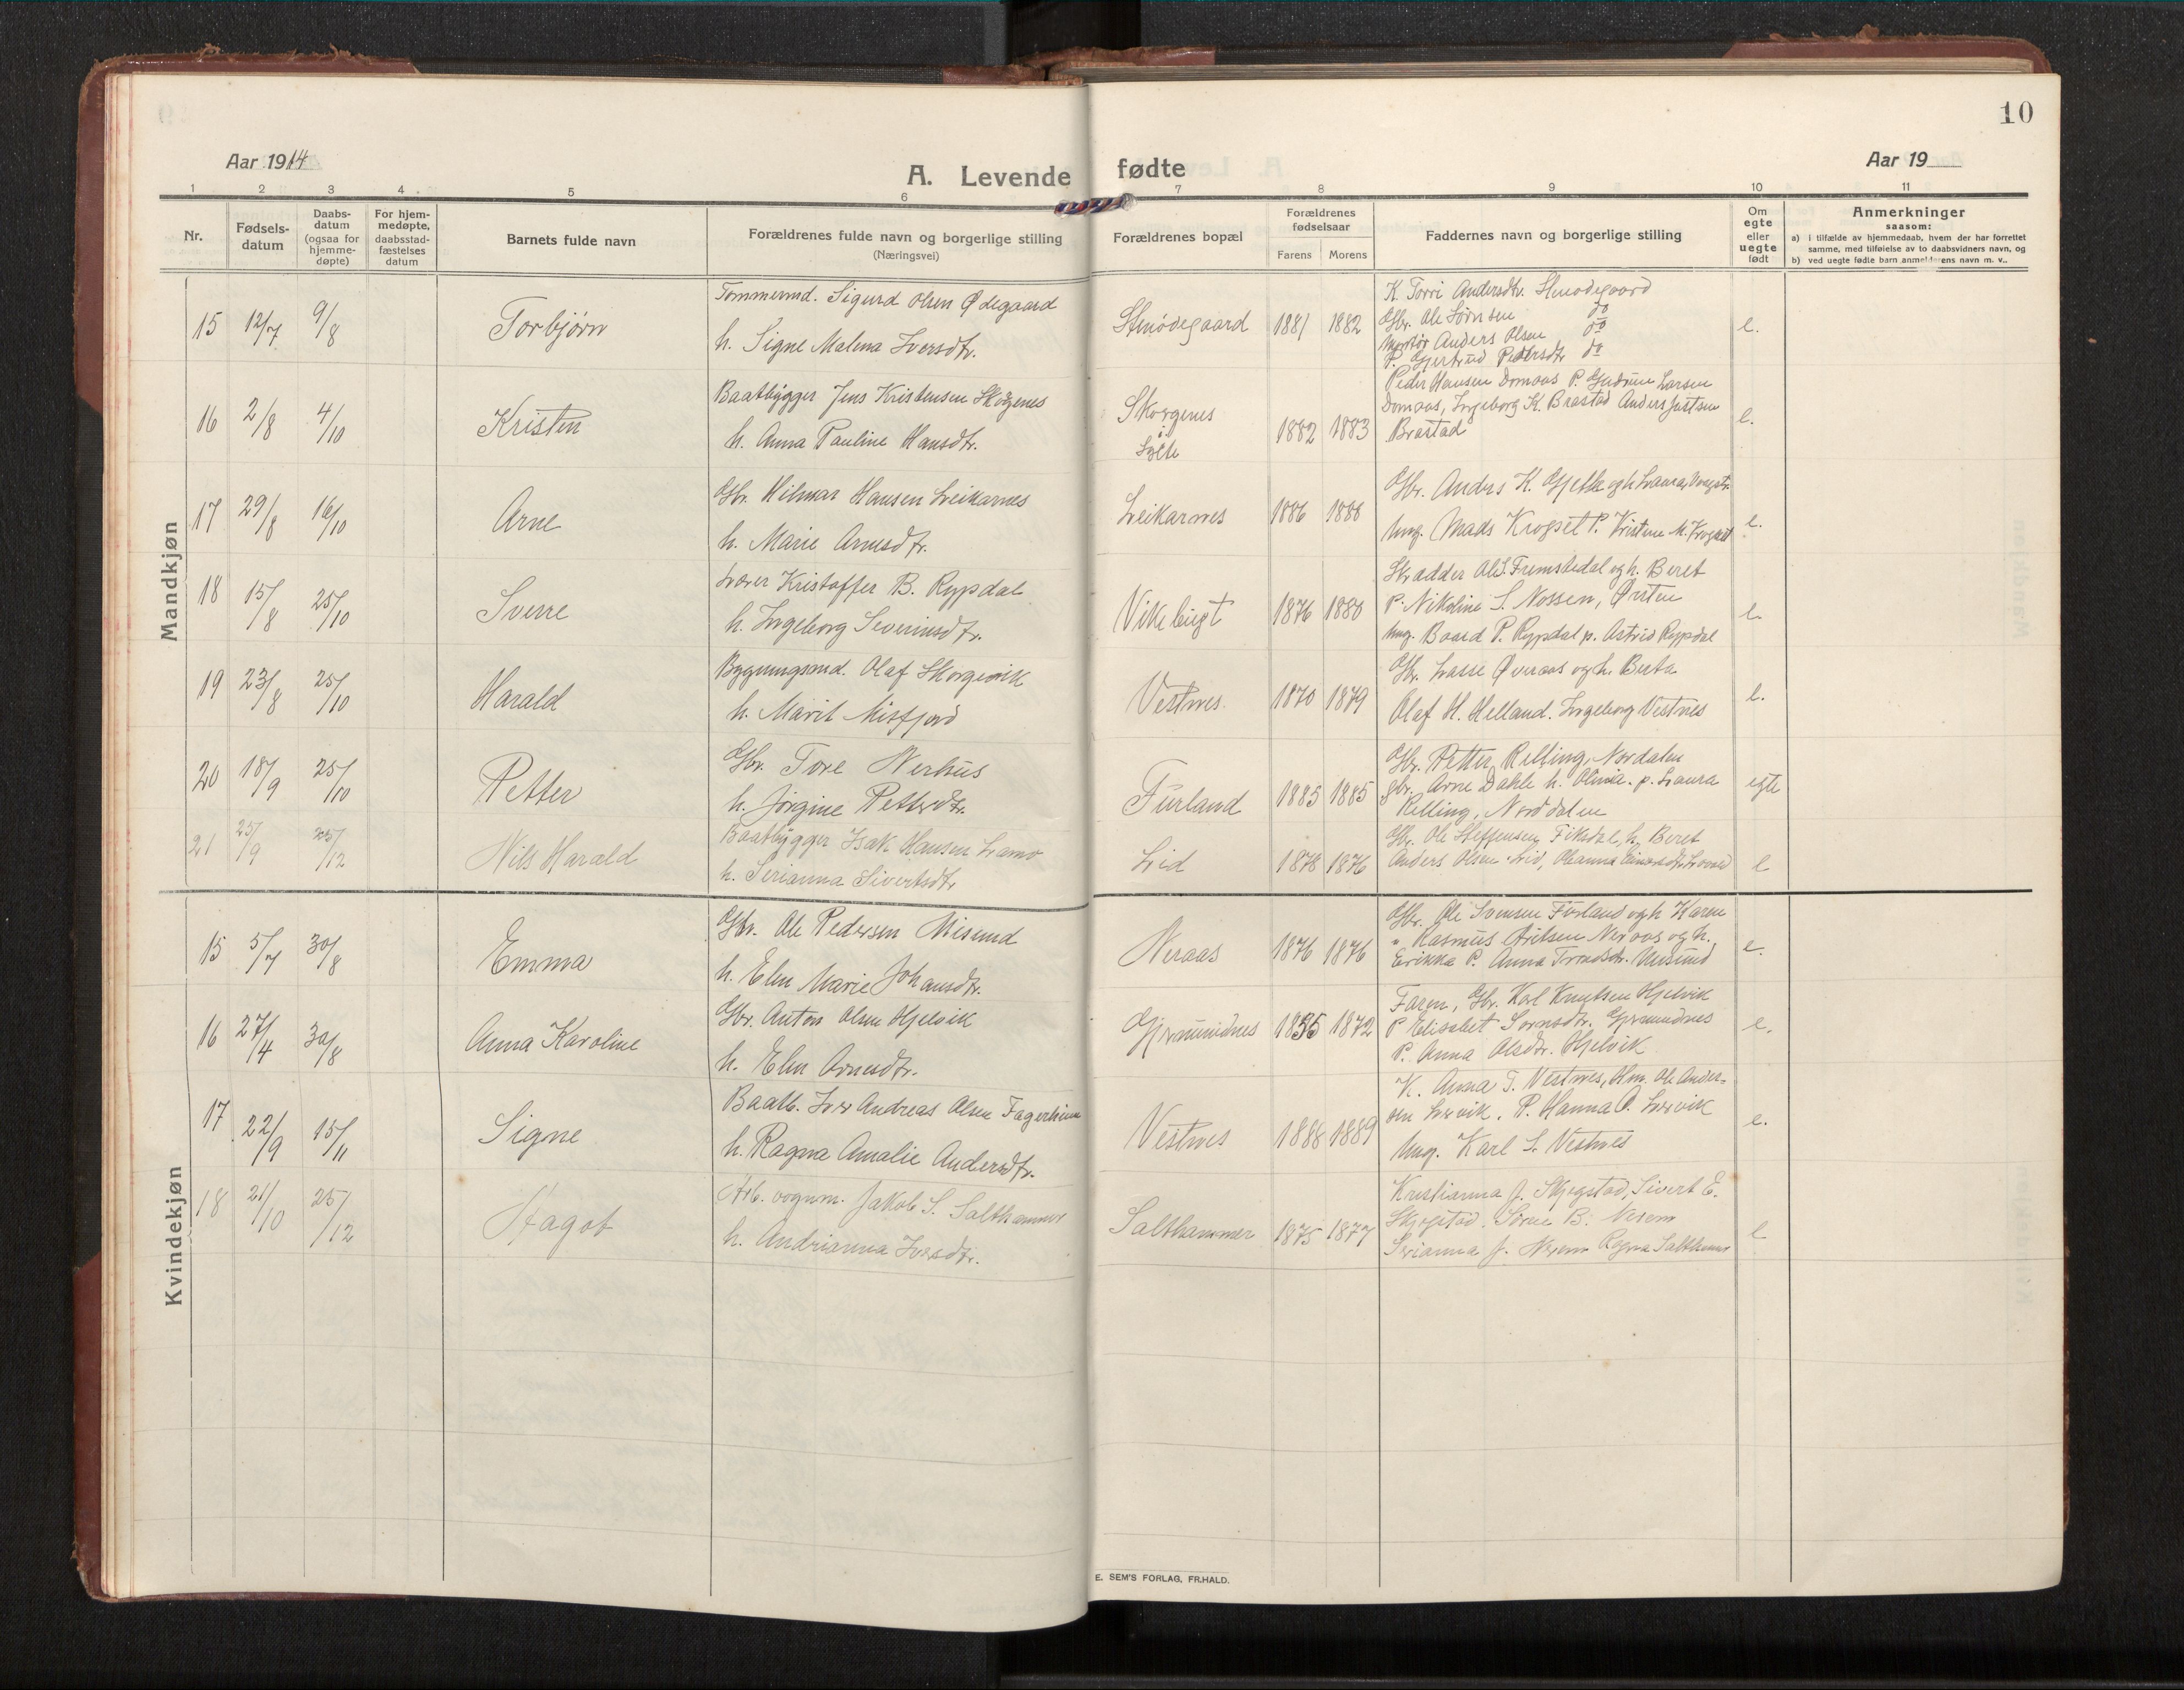 10
Aar 1914
A. Levende fødte
Aar 19
1 2 3 4 5 6 7 8 9 10 11
Nr.
Fødsels-
datum
Daabs-
datum
(ogsaa for
hjemme-
døpte)
For hjem-
medøpte,
daabsstad-
fæstelses
datum
Barnets fulde navn
Forældrenes fulde navn og borgerlige stilling
(Næringsvei)
Forældrenes bopæl
Forældrenes
fødselsaar
Farens Morens
Faddernes navn og borgerlige stilling
Om
egte
eller
uegte
født
Anmerkninger
saasom:
a) i tilfælde av hjemmedaab, hvem der har forrettet
samme, med tilføielse av to daabsvidners navn, og
b) ved uegte fødte barn anmelderens navn m. v.
Mandkjøn
15 12/7 9/8 Torbjørn
Tømmermd. Sigurd Olsen Ødegaard
h. Signe Malena Iversdtr.
1881 1882
K. Torri Andersdtr.
Gbr. Ole Sørnsen do
Anders Olsen do
P. Gjertrud Pedersdtr do
e.
16 2/8 4/10 Kristen
Baatbygger Jens Kristensen Skorgenes
h. Anna Pauline Hansdtr.
Skorgenes
i
1882 1883
Peder Hansen Domaas P. Gudrun Larsen
Domaas, Ingeborg K. Brastad Anders
Brastad
e.
17 29/8 16/10 Arne
Gbr. Hilmar Hansen Leikarnes
h. Marie Arnesdtr.
Leikarnes 1886 1888
Gbr. Anders K. Gjelle og h Laura
Ung. Mads Krogset P. Kristine M. Krogset
e.
18 15/8 25/10 Sverre
Lærer Kristoffer B. Rypdal
h. Ingeborg Severinsdtr.
Vikebugt 1876 1880
Skrædder Ole S. Fremstedal og h. Beret
P. Nikoline S. Nossen, Ørsten
Ung. Baard P. Rypdal p. Astrid Rypdal
e.
19 23/8 25/10 Harald
Bygningsmd. Olaf Skorgevik
h. Marit Misfjord
Vestnes. 1870 1879
Gbr. Lasse Øveraas og h. Berta
Olaf H. Helland. Ingeborg Vestnes
e.
20 18/9 25/10 Petter
Gbr. Tore Nerhus
h. Jørgine Pettersdtr.
Furland 1885 1885
Gbr. Petter Relling, Nordalen
gbr. Arne Dahle h. Olivia. p. Laura
Relling, Norddalen
egte
21 25/9 25/12 Nils Harald
Baatbygger Isak Hansen
h. Serianna Sivertsdtr
Lid 1878 1876
Gbr. Ole Steffensen Fiksdal, h. Beret
Anders Olsen Lid, Olianna
e
Kvindekjøn
15 5/7 30/8 Emma
Gbr. Ole Pedersen Misund
h. Elen Marie Johansdtr.
Neraas 1876 1876
Gbr. Ole Svensen Furland og h Karen
" Rasmus Eriksen Neraas og h.
Erikka P. Anna Misund
e.
16 27/4 30/8 Anna Karoline
Gbr. Anton Olsen Hjelvik
h. Elen Arnesdtr.
Gjermundnes 1872
Faren, Gbr. Karl Knutsen Hjelvik
P Elisabet Sørnsdtr. Gjermundnes
P. Anna Olsdtr. Hjelvik
e.
17 22/9 15/11 Signe
Baatb. Iver Andreas Olsen Fagerheim
h. Ragna Amalie Andersdtr.
Vestnes 1888 1889
K. Anna T. Vestnes, Ole Ander-
sen Lervik. P. Hanna O. Lervik
Ung. Karl S. Vestnes
e.
18 21/10 25/12 Dagot
Arb. Jakob S. Salthammer
h. Andrianna Iversdtr.
Salthammer 1875 1877
Kristianna J. Skjegstad, Sivert E.
Skjegstad. Søren B. Nerem
Serianna J. Nerem Ragna Salthammer
e
E. SEM'S FORLAG, FR.HALD.